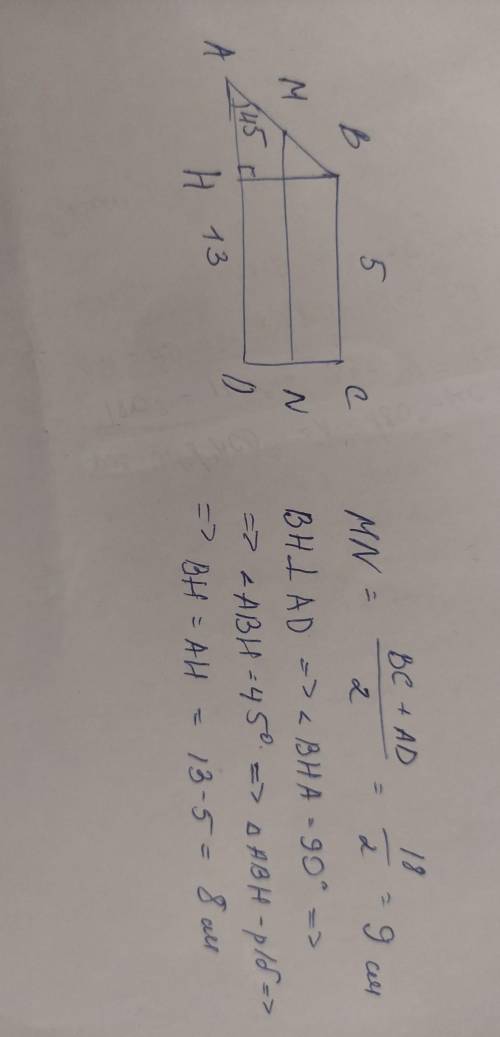 B 5 C
M N
A 45 H 13 D
MN = BC + AD / 2 = 18 / 2 = 9 см
BH ⊥ AD => ∠BHA = 90° =>
=> ∠ABH = 45° => ΔABH - р/б =>
=> BH = AH = 13 - 5 = 8 см